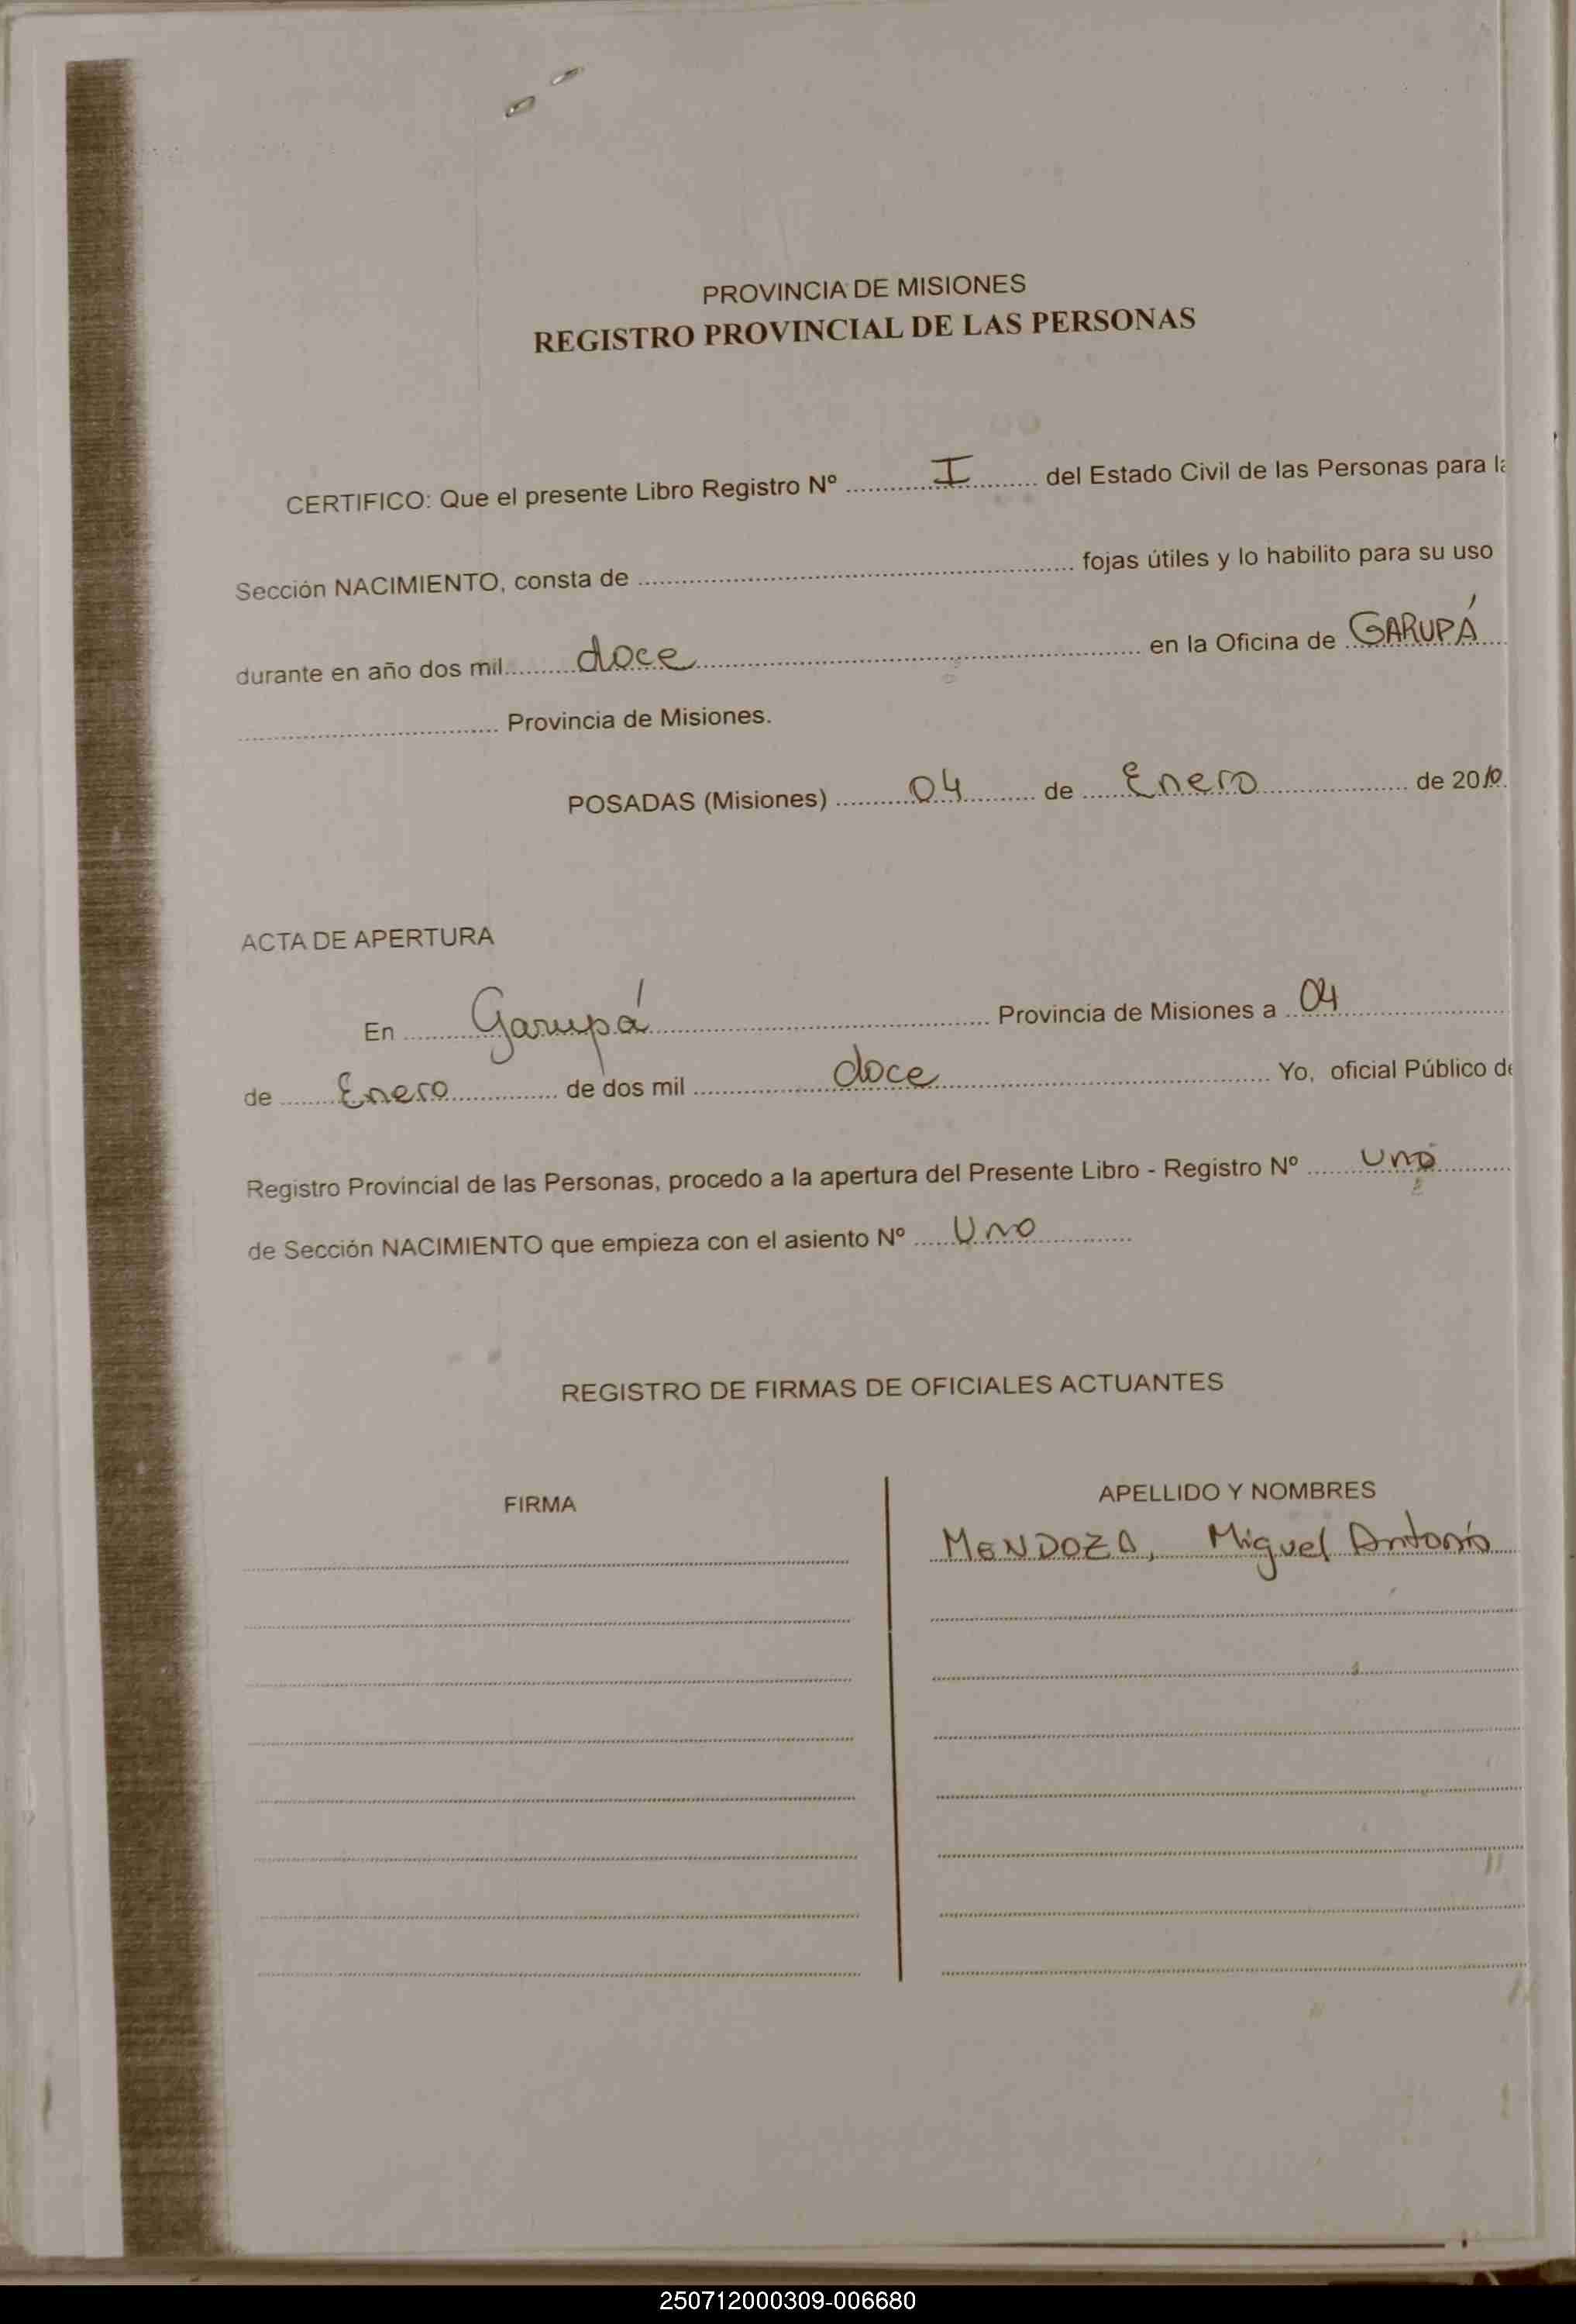 PROVINCIA DE MISIONES
REGISTRO PROVINCIAL DE LAS PERSONAS
CERTIFICO: Que el presente Libro Registro Nº I del Estado Civil de las Personas para la
Sección NACIMIENTO, consta de fojas útiles y lo habilito para su uso
durante en año dos mil doce en la Oficina de GARUPÁ
Provincia de Misiones.
POSADAS (Misiones) 04 de Enero de 2010
ACTA DE APERTURA
En Garupá Provincia de Misiones a 04
de Enero de dos mil doce Yo, oficial Público de
Registro Provincial de las Personas, procedo a la apertura del Presente Libro - Registro Nº Uno
de Sección NACIMIENTO que empieza con el asiento Nº Uno
REGISTRO DE FIRMAS DE OFICIALES ACTUANTES
FIRMA APELLIDO Y NOMBRES
MENDOZA, Miguel Antonio
250712000309-006680